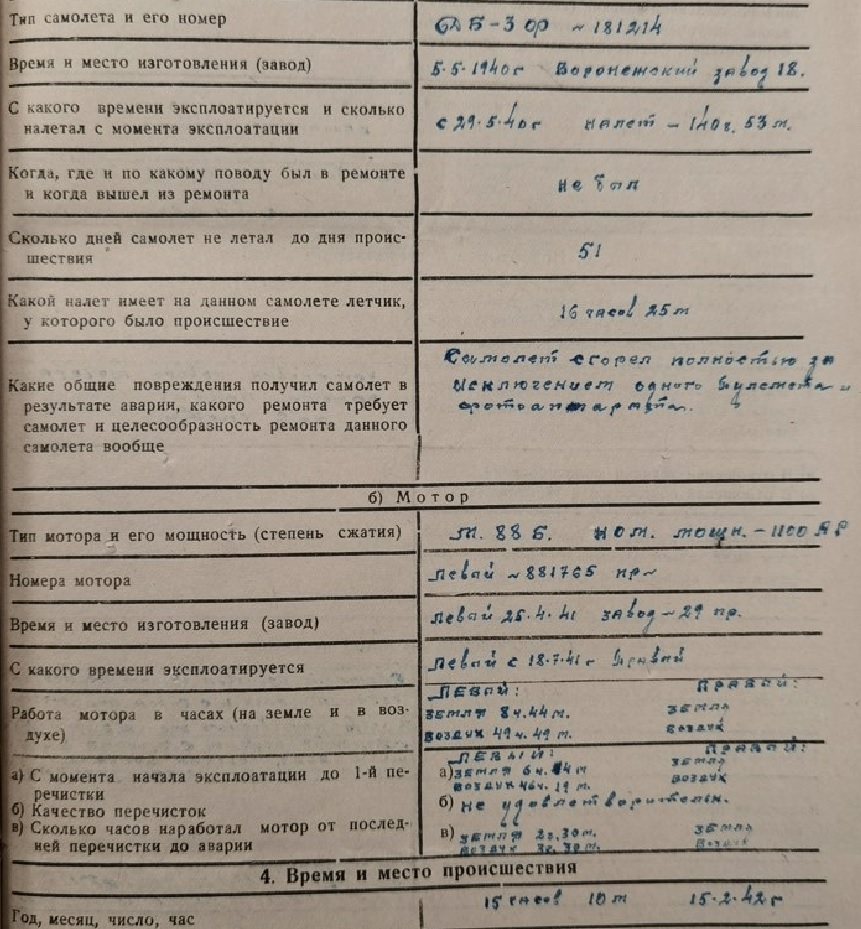 Тип самолета и его номер
ДБ-3 ф ~ 181214
Время и место изготовления (завод)
5-5-1940г Воронежский завод 18.
С какого времени эксплоатируется и сколько
налетал с момента эксплоатации
с 29.5.40г налет - 140ч. 53 м.
Когда, где и по какому поводу был в ремонте
и когда вышел из ремонта
не был
Сколько дней самолет не летал до дня проис-
шествия
51
Какой налет имеет на данном самолете летчик,
у которого было происшествие
16 часов 25 м
Какие общие повреждения получил самолет в
результате аварии, какого ремонта требует
самолет и целесообразность ремонта данного
самолета вообще
Самолет сгорел полностью за
исключением одного пулемета и
фотоаппарата.
б) Мотор
Тип мотора и его мощность (степень сжатия)
М. 88 Б. ном. мощн. - 1100
Номера мотора
Левый ~ 881765 пр~
Время и место изготовления (завод)
Левый 25.4.41 завод ~ 29 пр.
С какого времени эксплоатируется
Левый с 18.7.41г Правый
Работа мотора в часах (на земле и в воз-
духе)
ЛЕВЫЙ: ПРАВЫЙ:
ЗЕМЛЯ 8ч.44м. ЗЕМЛЯ
ВОЗДУХ 49ч.49м. ВОЗДУХ
а) С момента начала эксплоатации до 1-й пе-
речистки
б) Качество перечисток
в) Сколько часов наработал мотор от послед-
ней перечистки до аварии
ЛЕВЫЙ: ПРАВЫЙ:
а) ЗЕМЛЯ 6ч.14м ЗЕМЛЯ
ВОЗДУХ 46ч.19м. ВОЗДУХ
б) не удовлетворительн.
в) ЗЕМЛЯ 2ч.30м. ЗЕМЛЯ
ВОЗДУХ 3ч.30м. ВОЗДУХ
4. Время и место происшествия
Год, месяц, число, час
15 часов 10 м 15.2.42г